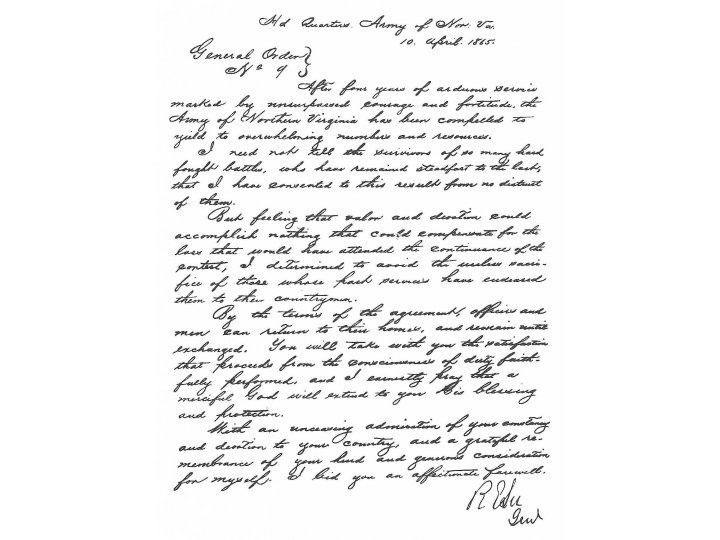 Hd Quarters. Army of Nor. Va.
10. April. 1865.
General Order }
No 9 }
After four years of arduous service
marked by unsurpassed courage and fortitude, the
Army of Northern Virginia has been compelled to
yield to overwhelming numbers and resources.
I need not tell the survivors of so many hard
fought battles, who have remained steadfast to the last,
that I have consented to this result from no distrust
of them.
But feeling that valor and devotion could
accomplish nothing that could compensate for the
loss that would have attended the continuance of the
contest, I determined to avoid the useless sacri-
fice of those whose past services have endeared
them to their countrymen.
By the terms of the agreement, officers and
men can return to their homes, and remain until
exchanged. You will take with you the satisfaction
that proceeds from the consciousness of duty faith-
fully performed, and I earnestly pray that a
merciful God will extend to you His blessing
and protection.
With an unceasing admiration of your constancy
and devotion to your country, and a grateful re-
membrance of your kind and generous consideration
for myself. I bid you an affectionate farewell.
R E Lee
Genl